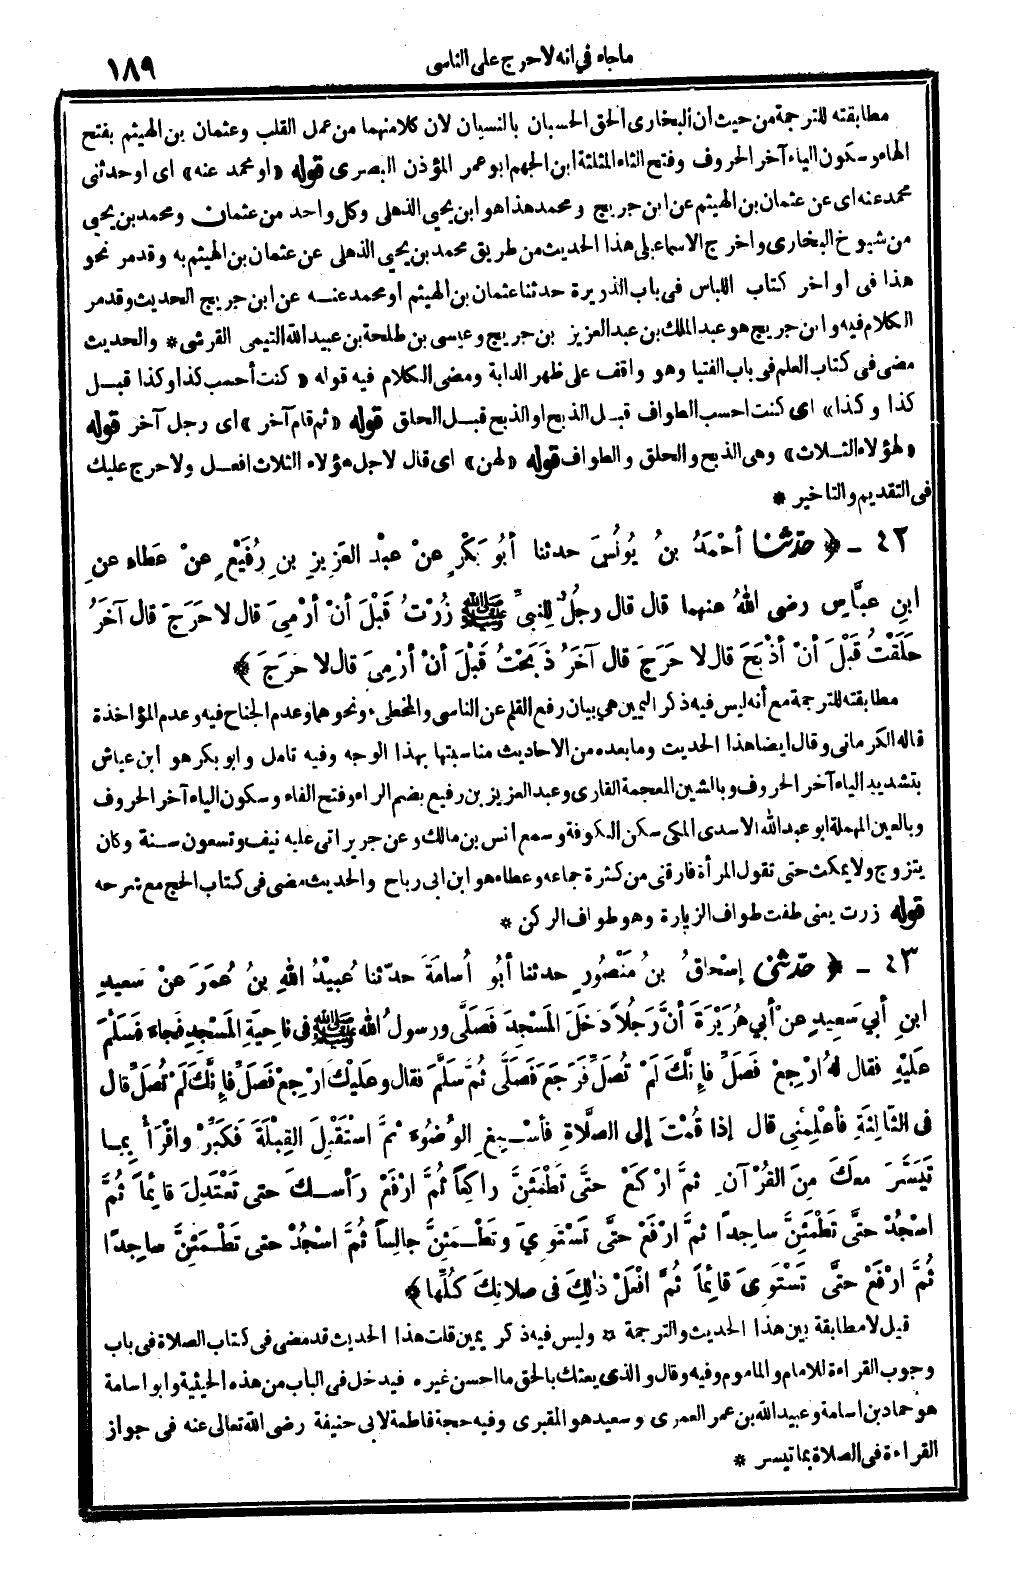 ما جاء في انه لا حرج على الناسى
١٨٩
مطابقته للترجمة من حيث أن ألبخارى ألحق الحسبان بالنسيان لان كلا منهما من عمل القلب وعثمان بن الهيثم بفتح
الهاء وسكون الياء آخر الحروف وفتح الثاء المثلثة ابن الجهم ابو عمر المؤذن البصرى قوله «او محمد عنه» اى او حدثنى
محمد عنه اى عن عثمان بن الهيثم عن ابن جريج ومحمد هذا هو ابن يحيى الذهلى وكل واحد من عثمان ومحمد بن يحيى
من شيوخ البخارى واخرج الاسماعيلى هذا الحديث من طريق محمد بن يحيى الذهلى عن عثمان بن الهيثم به وقد مر نحو
هذا فى اواخر كتاب اللباس فى باب الذريرة حدثنا عثمان بن الهيثم او محمد عنه عن ابن جريج الحديث وقد مر
الكلام فيه وابن جريج هو عبد الملك بن عبد العزيز بن جريج وعيسى بن طلحة بن عبيد الله التيمى القرشى * والحديث
مضى فى كتاب العلم فى باب الفتيا وهو واقف على ظهر الدابة ومضى الكلام فيه قوله «كنت أحسب كذا وكذا قبل
كذا وكذا» اى كنت احسب الطواف قبل الذبح او الذبح قبل الحلق قوله «ثم قام آخر» اى رجل آخر قوله
«لهؤلاء الثلاث» وهى الذبح والحلق والطواف قوله «لهن» اى قال لاجل هؤلاء الثلاث افعل ولا حرج عليك
فى التقديم والتاخير *
٤٢ - ﴿ حدثنا أحْمَدُ بنُ يُونُسَ حدثنا أبُو بَكْرٍ عنْ عبْدِ العَزِيزِ بنِ رُفَيْعٍ عنْ عَطاءٍ عنِ
ابنِ عبَّاسٍ رضى اللهُ عنهما قال قال رجلٌ للنبيِّ ﷺ زُرْتُ قَبْلَ أنْ أرْمِىَ قال لا حَرَجَ قال آخَرُ
حلَقْتُ قَبْلَ أنْ أذْبَحَ قال لا حَرَجَ قال آخَرُ ذَبَحْتُ قَبْلَ أنْ أرْمِىَ قال لا حَرَجَ ﴾
مطابقته للترجمة مع أنه ليس فيه ذكر اليمين هى بيان رفع القلم عن الناسى والمخطىء ونحوهما وعدم الجناح فيه وعدم المؤاخذة
قاله الكرمانى وقال ايضا هذا الحديث وما بعده من الاحاديث مناسبتها بهذا الوجه وفيه تامل وابو بكر هو ابن عياش
بتشديد الياء آخر الحروف وبالشين المعجمة القارى وعبد العزيز بن رفيع بضم الراء وفتح الفاء وسكون الياء آخر الحروف
وبالعين المهملة ابو عبد الله الاسدى المكى سكن الكوفة وسمع انس بن مالك وعن جرير اتى عليه نيف وتسعون سنة وكان
يتزوج ولا يمكث حتى تقول المرأة فارقنى من كثرة جماعه وعطاء هو ابن ابى رباح والحديث مضى فى كتاب الحج مع شرحه
قوله زرت يعنى طفت طواف الزيارة وهو طواف الركن *
٤٣ - ﴿ حدثنى إسْحاقُ بنُ مَنْصُورٍ حدثنا أبُو أُسامَةَ حدّثنا عُبيْدُ اللهِ بنُ عُمَرَ عنْ سَعِيدِ
ابنِ أبي سَعِيدٍ عن أبي هُرَيْرَةَ أنَّ رَجُلاً دَخَلَ المَسْجِدَ فَصَلَّى ورسولُ الله ﷺ فى ناحِيَةِ المَسْجِدِ فَجاءَ فَسَلَّمَ
عَلَيْهِ فقال لهُ ارْجِعْ فَصَلِّ فإنَّكَ لَمْ تُصَلِّ فَرَجَعَ فَصَلَّى ثُمَّ سَلَّمَ فقال وعَلَيْكَ ارْجِعْ فَصَلِّ فإنَّكَ لَمْ تُصَلِّ قال
فى الثَّالِثَةِ فأعْلِمْنِى قال إذا قُمْتَ إلى الصَّلاةِ فأسْبِغِ الوُضُوءَ ثمَّ اسْتَقْبِلِ القِبْلَةَ فَكَبِّرْ واقْرَأْ بِما
تَيَسَّرَ معَكَ مِنَ القُرْآنِ ثمَّ ارْكَعْ حتَّى تَطْمَئِنَّ راكِعاً ثُمَّ ارْفَعْ رَأْسَكَ حتى تَعْتَدِلَ قائِماً ثُمَّ
اسْجُدْ حتَّى تَطْمَئِنَّ ساجِدًا ثمَّ ارْفَعْ حتَّى تَسْتَوِيَ وتَطْمَئِنَّ جالِساً ثُمَّ اسْجُدْ حتى تَطْمَئِنَّ ساجِدًا
ثُمَّ ارْفَعْ حتَّى تَسْتَوِىَ قائِماً ثُمَّ افْعَلْ ذٰلِكَ فى صلاتِكَ كُلِّها ﴾
قيل لا مطابقة بين هذا الحديث والترجمة * وليس فيه ذكر يمين قلت هذا الحديث قد مضى فى كتاب الصلاة فى باب
وجوب القراءة للامام والماموم وفيه وقال والذى بعثك بالحق ما احسن غيره فيدخل فى الباب من هذه الحيثية وابو اسامة
هو حماد بن اسامة وعبيد الله بن عمر العمرى وسعيد هو المقبرى وفيه حجة قاطعة لابى حنيفة رضى الله تعالى عنه فى جواز
القراءة فى الصلاة بما تيسر *